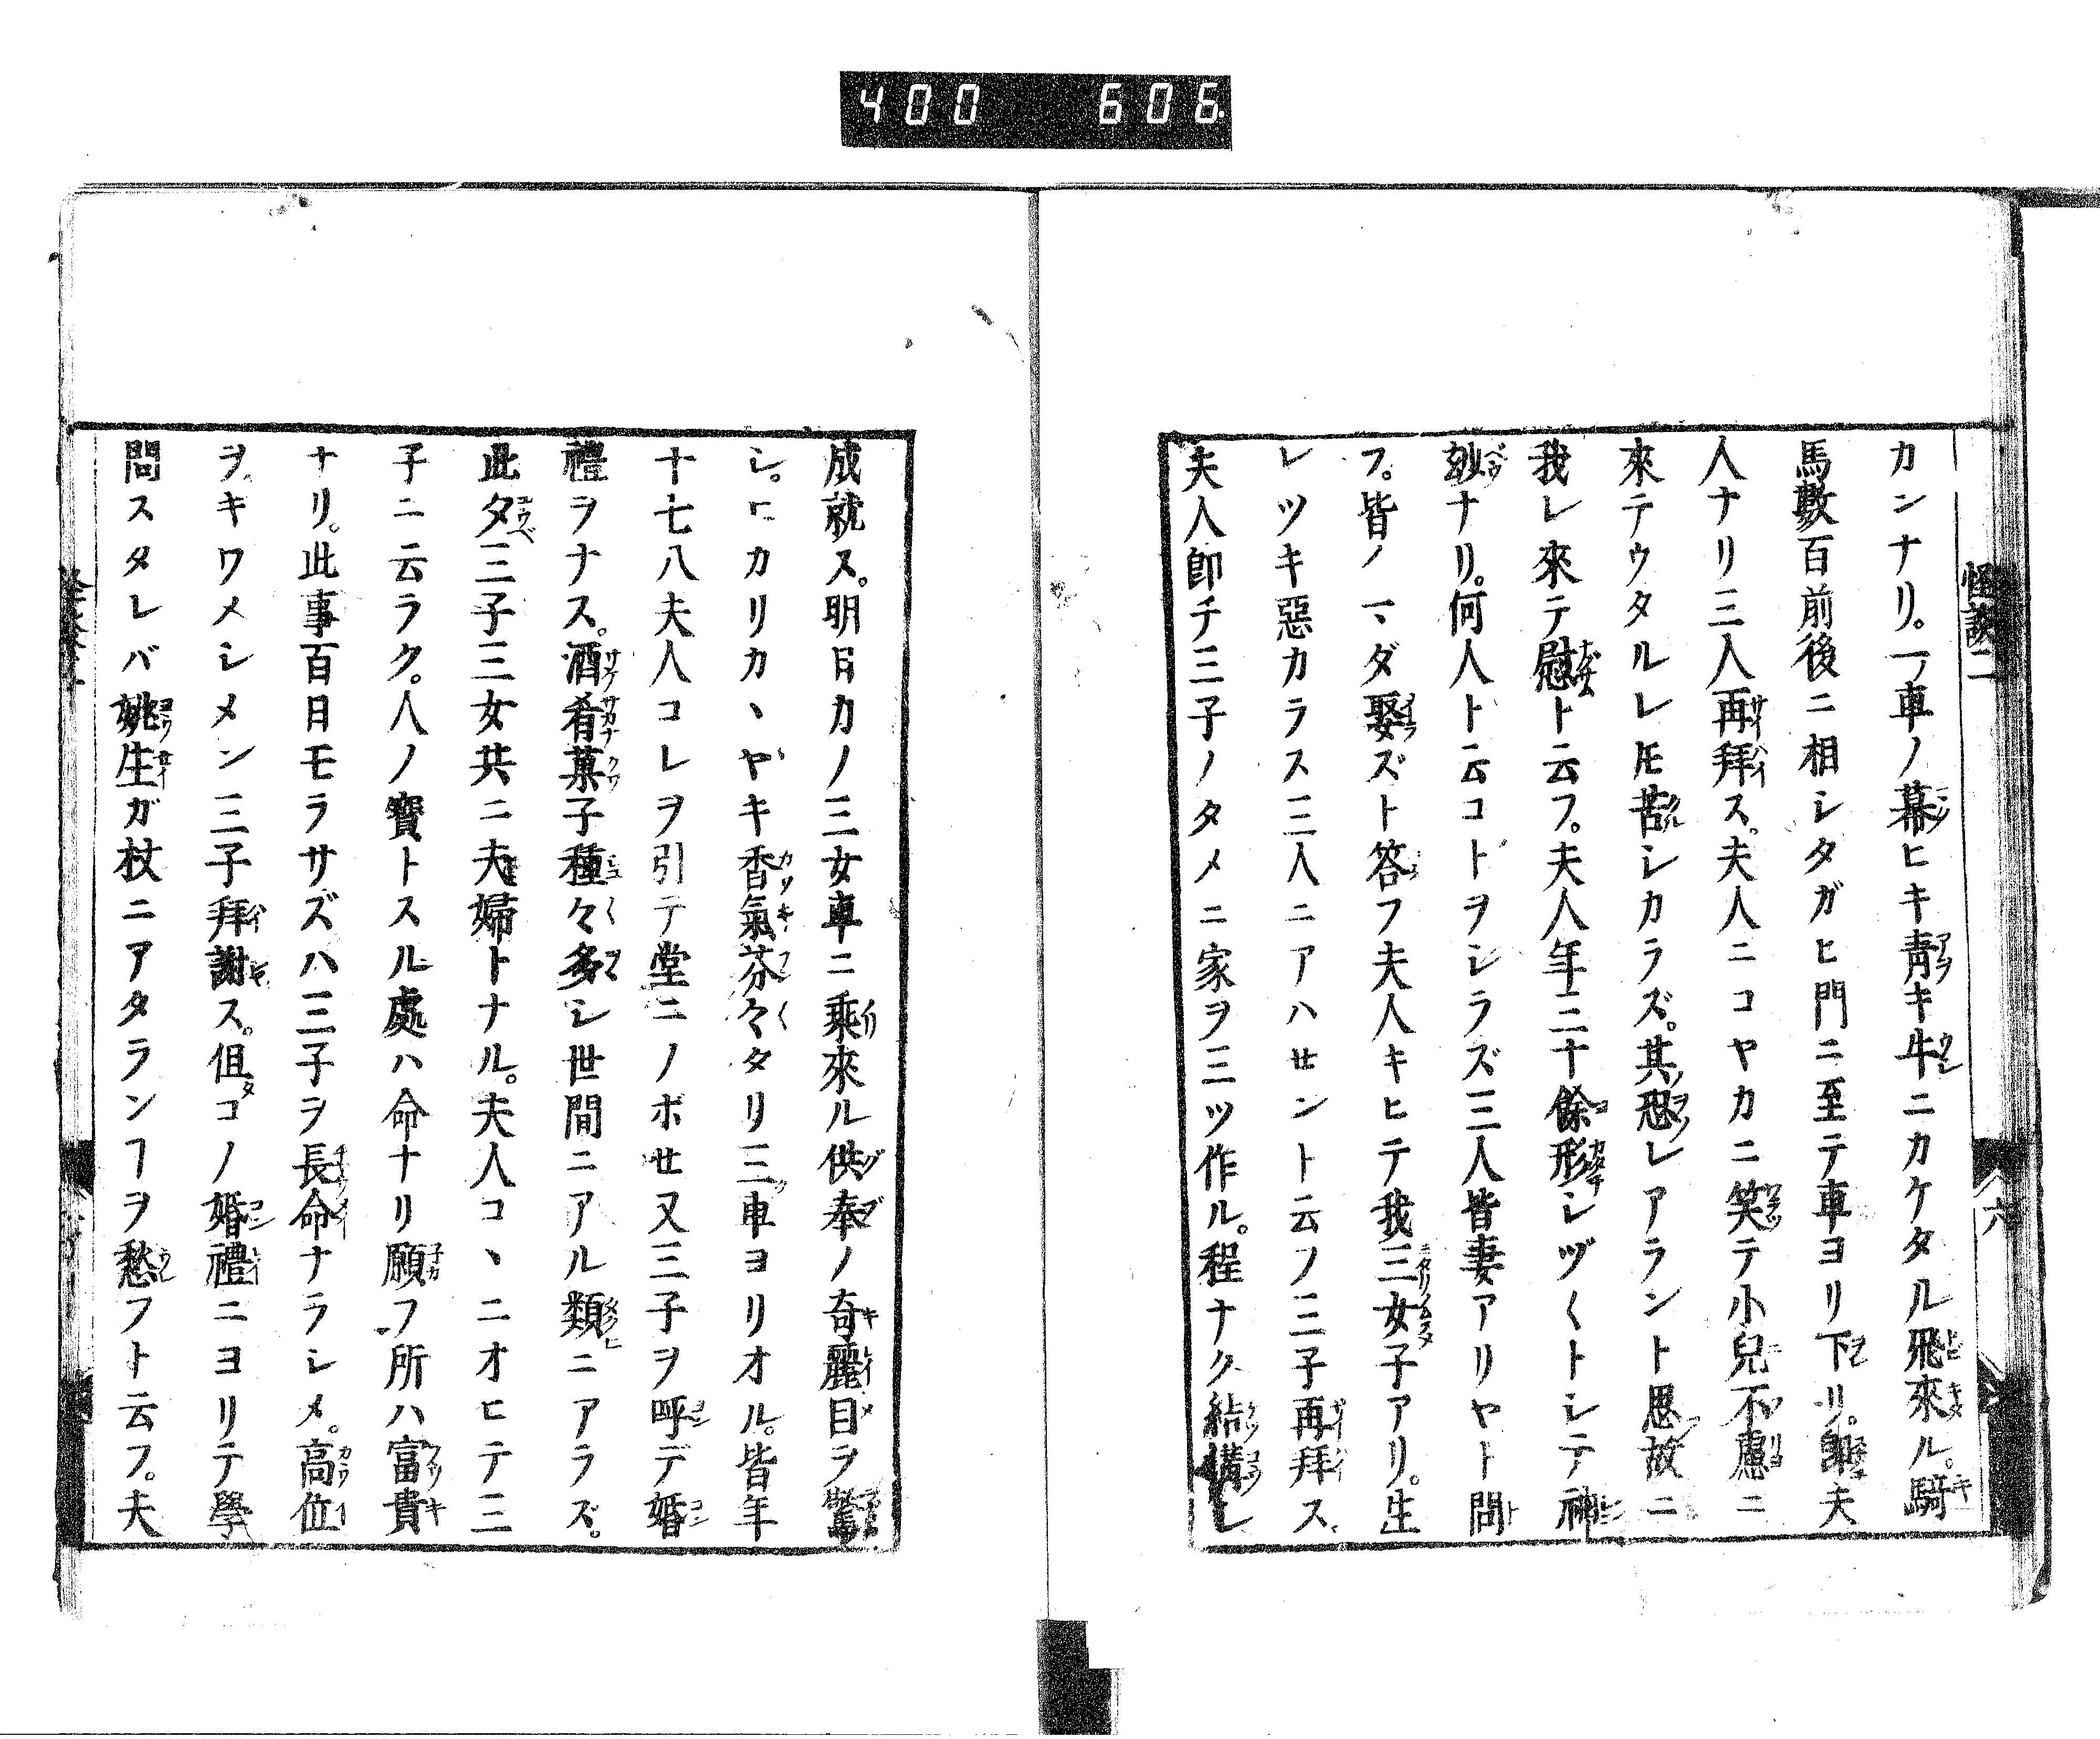 400 606
怪談二
六
カンナリ。一ノ車ノ幕ヒキ靑キ牛ニカケタル飛來ル。騎
馬數百前後ニ相シタガヒ門ニ至テ車ヨリ下リ。卽夫
人ナリ三人再拜ス。夫人ニコヤカニ笑テ小兒不慮ニ
來テウタルレ𪜈苦シカラズ。其恐レアラント思故ニ
我レ來テ慰ト云フ。夫人年三十餘形シヅ〱トシテ神
妙ナリ。何人ト云コトヲシラズ三人皆妻アリヤト問
フ。皆ノマダ娶ズト答フ夫人キヒテ我三女子アリ。生
レツキ惡カラス三人ニアハセント云フ三子再拜ス
夫人卽チ三子ノタメニ家ヲ三ツ作ル。程ナク結構シ
成就ス。明日カノ三女車ニ乘來ル供奉ノ奇麗目ヲ驚
シ。ヒカリカヽヤキ香氣芬々タリ三車ヨリオル。皆年
十七八夫人コレヲ引テ堂ニノボセ又三子ヲ呼デ婚
禮ヲナス。酒肴菓子種々多シ世間ニアル類ニアラズ。
此夕三子三女共ニ夫婦トナル。夫人コヽニオヒテ三
子ニ云ラク。人ノ寶トスル處ハ命ナリ願フ所ハ富貴
ナリ。此事百日モラサズハ三子ヲ長命ナラシメ。高位
ヲキワメシメン三子拜謝ス。但コノ婚禮ニヨリテ學
問スタレバ姚生ガ杖ニアタランヿヲ愁フト云フ。夫